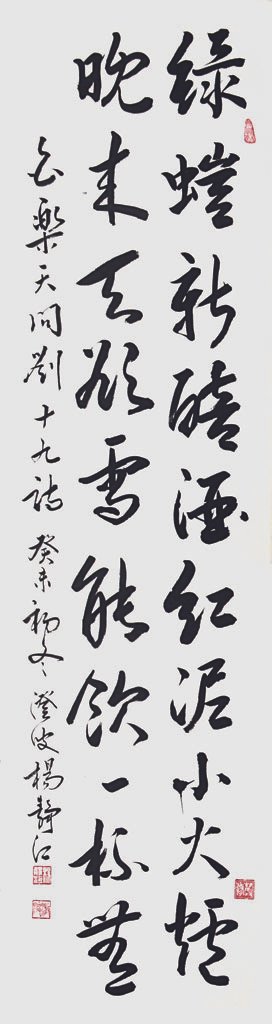 綠螘新醅酒紅泥小火爐
晚来天欲雪能飲一杯無
白樂天問劉十九詩 癸未初冬 澄波楊靜江